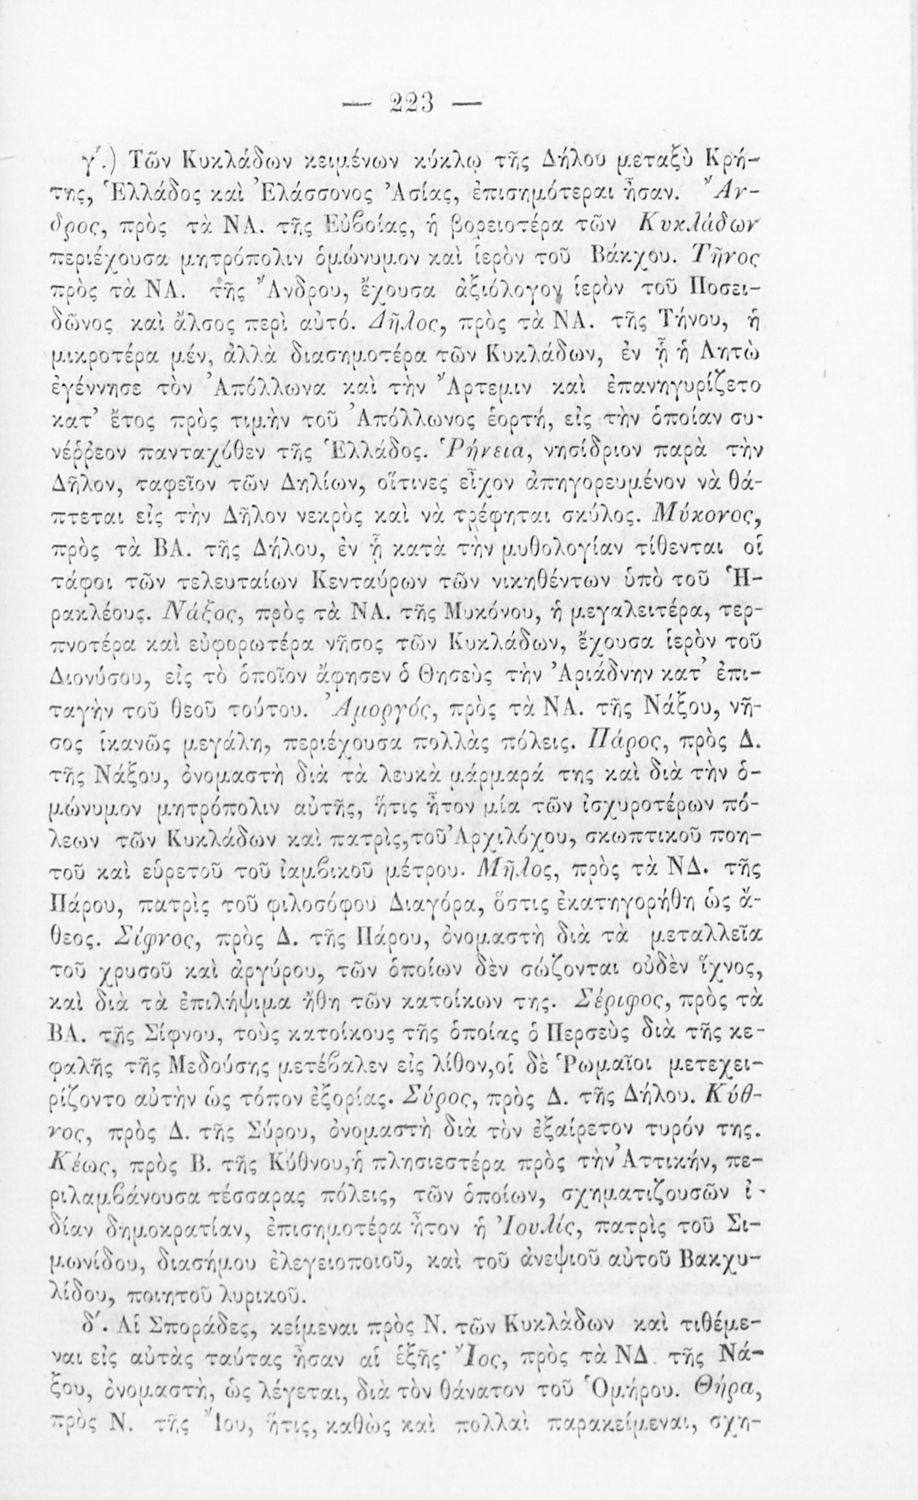 — 223 —
γ΄.) Τῶν Κυκλάδων κειμένων κύκλῳ τῆς Δήλου μεταξὺ Κρή-
της, Ἑλλάδος καὶ Ἐλάσσονος Ἀσίας, ἐπισημότεραι ἦσαν. Ἄν-
δρος, πρὸς τὰ ΝΑ. τῆς Εὐβοίας, ἡ βορειοτέρα τῶν Κυκλάδων
περιέχουσα μητρόπολιν ὁμώνυμον καὶ ἱερὸν τοῦ Βάκχου. Τῆνος
πρὸς τὰ ΝΑ. τῆς Ἄνδρου, ἔχουσα ἀξιόλογον ἱερὸν τοῦ Ποσει-
δῶνος καὶ ἄλσος περὶ αὐτό. Δῆλος, πρὸς τὰ ΝΑ. τῆς Τήνου, ἡ
μικροτέρα μέν, ἀλλὰ διασημοτέρα τῶν Κυκλάδων, ἐν ᾗ ἡ Λητὼ
ἐγέννησε τὸν Ἀπόλλωνα καὶ τὴν Ἄρτεμιν καὶ ἐπανηγυρίζετο
κατ' ἔτος πρὸς τιμὴν τοῦ Ἀπόλλωνος ἑορτή, εἰς τὴν ὁποίαν συ-
νέῤῥεον πανταχόθεν τῆς Ἑλλάδος. Ῥήνεια, νησίδριον παρὰ τὴν
Δῆλον, ταφεῖον τῶν Δηλίων, οἵτινες εἶχον ἀπηγορευμένον νὰ θά-
πτεται εἰς τὴν Δῆλον νεκρὸς καὶ νὰ τρέφηται σκύλος. Μύκονος,
πρὸς τὰ ΒΑ. τῆς Δήλου, ἐν ᾗ κατὰ τὴν μυθολογίαν τίθενται οἱ
τάφοι τῶν τελευταίων Κενταύρων τῶν νικηθέντων ὑπὸ τοῦ Ἡ-
ρακλέους. Νάξος, πρὸς τὰ ΝΑ. τῆς Μυκόνου, ἡ μεγαλειτέρα, τερ-
πνοτέρα καὶ εὐφορωτέρα νῆσος τῶν Κυκλάδων, ἔχουσα ἱερὸν τοῦ
Διονύσου, εἰς τὸ ὁποῖον ἄφησεν ὁ Θησεὺς τὴν Ἀριάδνην κατ' ἐπι-
ταγὴν τοῦ θεοῦ τούτου. Ἀμοργός, πρὸς τὰ ΝΑ. τῆς Νάξου, νῆ-
σος ἱκανῶς μεγάλη, περιέχουσα πολλὰς πόλεις. Πάρος, πρὸς Δ.
τῆς Νάξου, ὀνομαστὴ διὰ τὰ λευκὰ μάρμαρά της καὶ διὰ τὴν ὁ-
μώνυμον μητρόπολιν αὐτῆς, ἥτις ἦτον μία τῶν ἰσχυροτέρων πό-
λεων τῶν Κυκλάδων καὶ πατρὶς,τοῦ Ἀρχιλόχου, σκωπτικοῦ ποιη-
τοῦ καὶ εὑρετοῦ τοῦ ἰαμβικοῦ μέτρου. Μῆλος, πρὸς τὰ ΝΔ. τῆς
Πάρου, πατρὶς τοῦ φιλοσόφου Διαγόρα, ὅστις ἐκατηγορήθη ὡς ἄ-
θεος. Σίφνος, πρὸς Δ. τῆς Πάρου, ὀνομαστὴ διὰ τὰ μεταλλεῖα
τοῦ χρυσοῦ καὶ ἀργύρου, τῶν ὁποίων δὲν σώζονται οὐδὲν ἴχνος,
καὶ διὰ τὰ ἐπιλήψιμα ἤθη τῶν κατοίκων της. Σέριφος, πρὸς τὰ
ΒΑ. τῆς Σίφνου, τοὺς κατοίκους τῆς ὁποίας ὁ Περσεὺς διὰ τῆς κε-
φαλῆς τῆς Μεδούσης μετέβαλεν εἰς λίθον,οἱ δὲ Ῥωμαῖοι μετεχει-
ρίζοντο αὐτὴν ὡς τόπον ἐξορίας. Σύρος, πρὸς Δ. τῆς Δήλου. Κύθ-
νος, πρὸς Δ. τῆς Σύρου, ὀνομαστὴ διὰ τὸν ἐξαίρετον τυρόν της.
Κέως, πρὸς Β. τῆς Κύθνου,ἡ πλησιεστέρα πρὸς τὴν Ἀττικήν, πε-
ριλαμβάνουσα τέσσαρας πόλεις, τῶν ὁποίων, σχηματιζουσῶν ἰ-
δίαν δημοκρατίαν, ἐπισημοτέρα ἦτον ἡ Ἰουλίς, πατρὶς τοῦ Σι-
μωνίδου, διασήμου ἐλεγειοποιοῦ, καὶ τοῦ ἀνεψιοῦ αὐτοῦ Βακχυ-
λίδου, ποιητοῦ λυρικοῦ.
δ΄. Αἱ Σποράδες, κείμεναι πρὸς Ν. τῶν Κυκλὰδων καὶ τιθέμε-
ναι εἰς αὐτὰς ταύτας ἦσαν αἱ ἑξῆς· Ἴος, πρὸς τὰ ΝΔ. τῆς Νά-
ξου, ὀνομαστὴ, ὡς λέγεται, διὰ τὸν θάνατον τοῦ Ὁμήρου. Θήρα,
πρὸς Ν. τῆς Ἴου, ἥτις, καθὼς καὶ πολλαὶ παρακείμεναι, σχη-